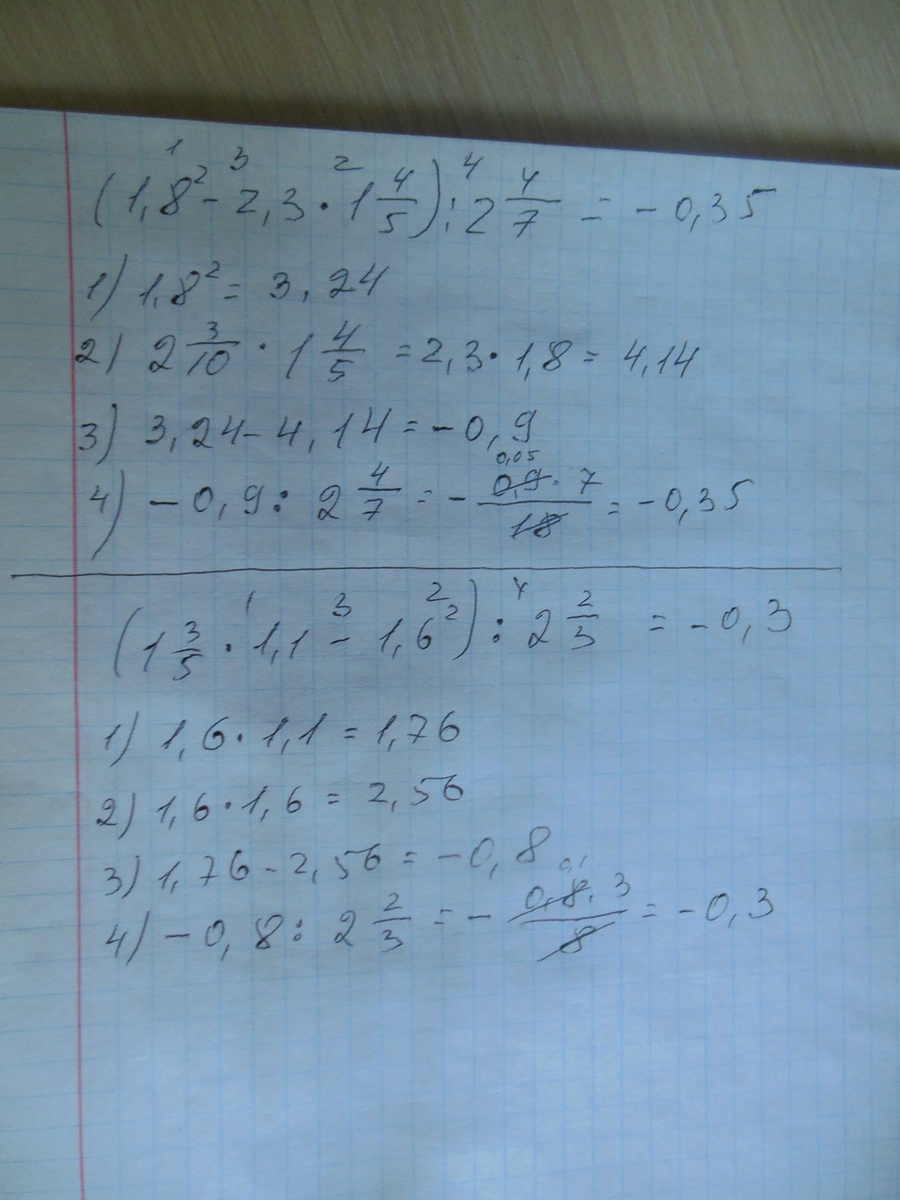 1 3 2 4
(1,8² - 2,3 · 1 4/5) : 2 4/7 = - 0,35
1) 1,8² = 3,24
2) 2 3/10 · 1 4/5 = 2,3 · 1,8 = 4,14
3) 3,24 - 4,14 = - 0,9
0,05
4) - 0,9 : 2 4/7 = - 0,9 · 7/18 = - 0,35
1 3 2 4
(1 3/5 · 1,1 - 1,6²) : 2 2/3 = - 0,3
1) 1,6 · 1,1 = 1,76
2) 1,6 · 1,6 = 2,56
3) 1,76 - 2,56 = - 0,8
0,1
4) - 0,8 : 2 2/3 = - 0,8 · 3/8 = - 0,3